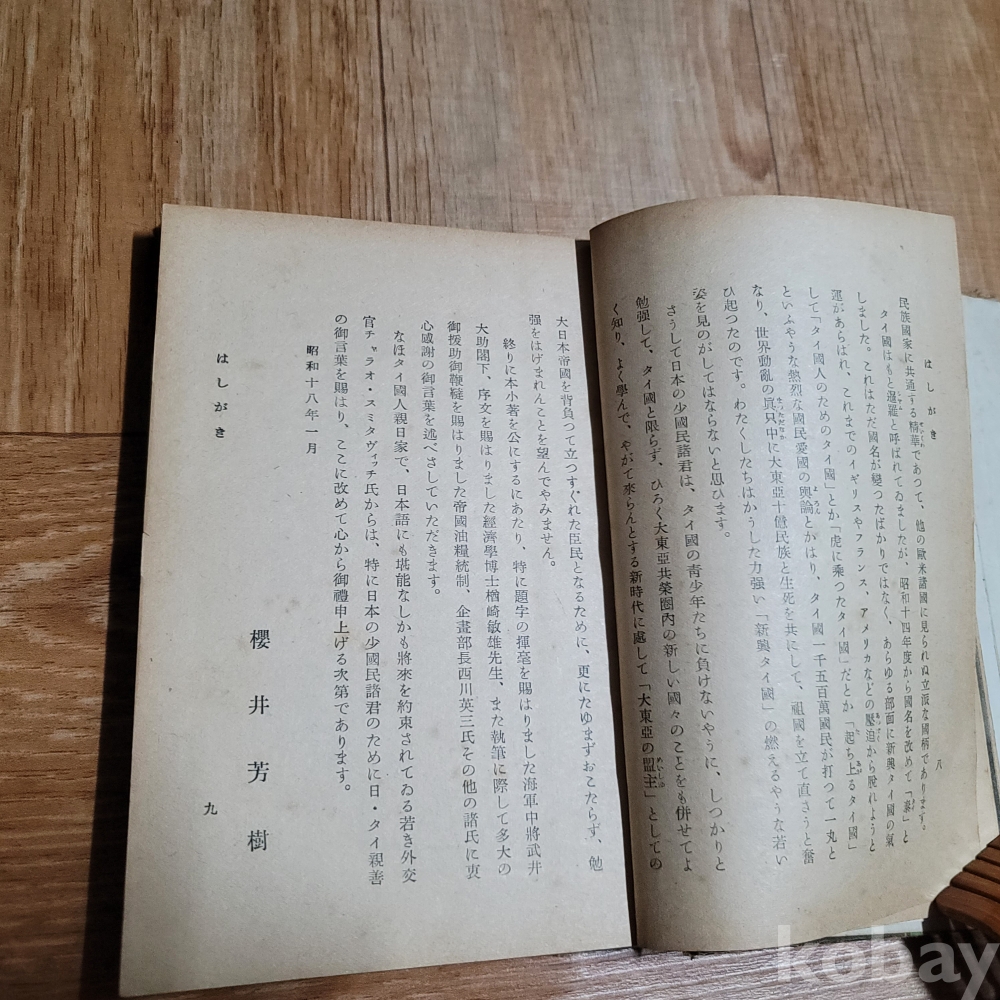 はしがき
八
民族國家に共通する精華であつて、他の歐米諸國に見られぬ立派な國柄であります。
タイ國はもと暹羅と呼ばれてゐましたが、昭和十四年度から國名を改めて「泰」と
しました。これはただ國名が變つたばかりではなく、あらゆる部面に新興タイ國の氣
運があらはれ、これまでのイギリスやフランス、アメリカなどの壓迫から脫れようと
して「タイ國人のためのタイ國」とか「虎に乘つたタイ國」だとか「起ち上るタイ國」
といふやうな熱烈な國民愛國の輿論とかはり、タイ國一千五百萬國民が打つて一丸と
なり、世界動亂の眞只中に大東亞十億民族と生死を共にして、祖國を立て直さうと奮
ひ起つたのです。わたくしたちはかうした力强い「新興タイ國」の燃えるやうな若い
姿を見のがしてはならないと思ひます。
さうして日本の少國民諸君は、タイ國の靑少年たちに負けないやうに、しつかりと
勉强して、タイ國と限らず、ひろく大東亞共榮圈內の新しい國々のことをも併せてよ
く知り、よく學んで、やがて來らんとする新時代に處して「大東亞の盟主」としての
大日本帝國を背負つて立つすぐれた臣民となるために、更にたゆまずおこたらず、勉
强をはげまれんことを望んでやみません。
終りに本小著を公にするにあたり、特に題字の揮毫を賜はりました海軍中將武井
大助閣下、序文を賜はりました經濟學博士楢崎敏雄先生、また執筆に際して多大の
御援助御鞭韃を賜はりました帝國油糧統制、企畫部長西川英三氏その他の諸氏に衷
心感謝の御言葉を述べさしていただきます。
なほタイ國人親日家で、日本語にも堪能なしかも將來を約束されてゐる若き外交
官チャラオ・スミタヴィッチ氏からは、特に日本の少國民諸君のために日・タイ親善
の御言葉を賜はり、ここに改めて心から御禮申上げる次第であります。
昭和十八年一月
櫻井芳樹
はしがき
九
kobay